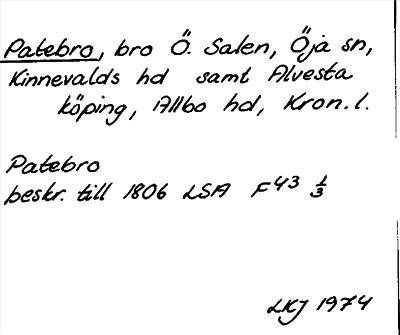 Patebro, bro Ö. Salen, Öja sn,
Kinnevalds hd samt Alvesta
köping, Allbo hd, Kron. l.
Patebro
beskr. till 1806 LSA F43 1/3
LKJ 1974